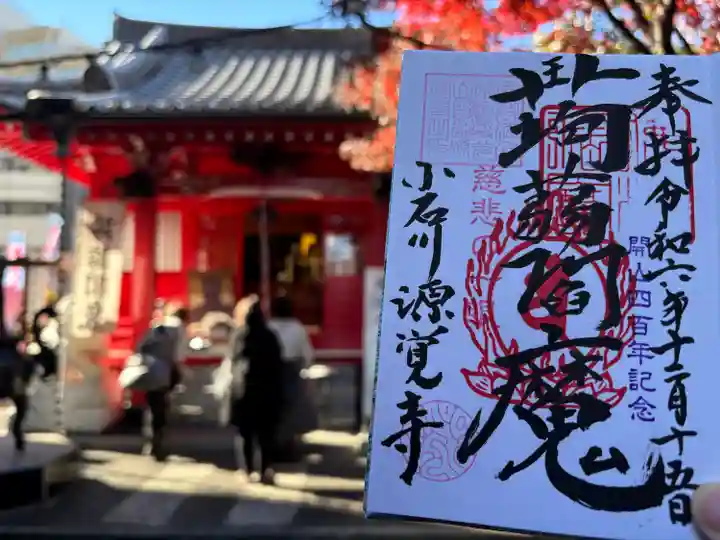 奉拝 令和六年十二月十五日
開山四百年記念
蒟蒻閻魔
慈悲の
小石川 源覚寺